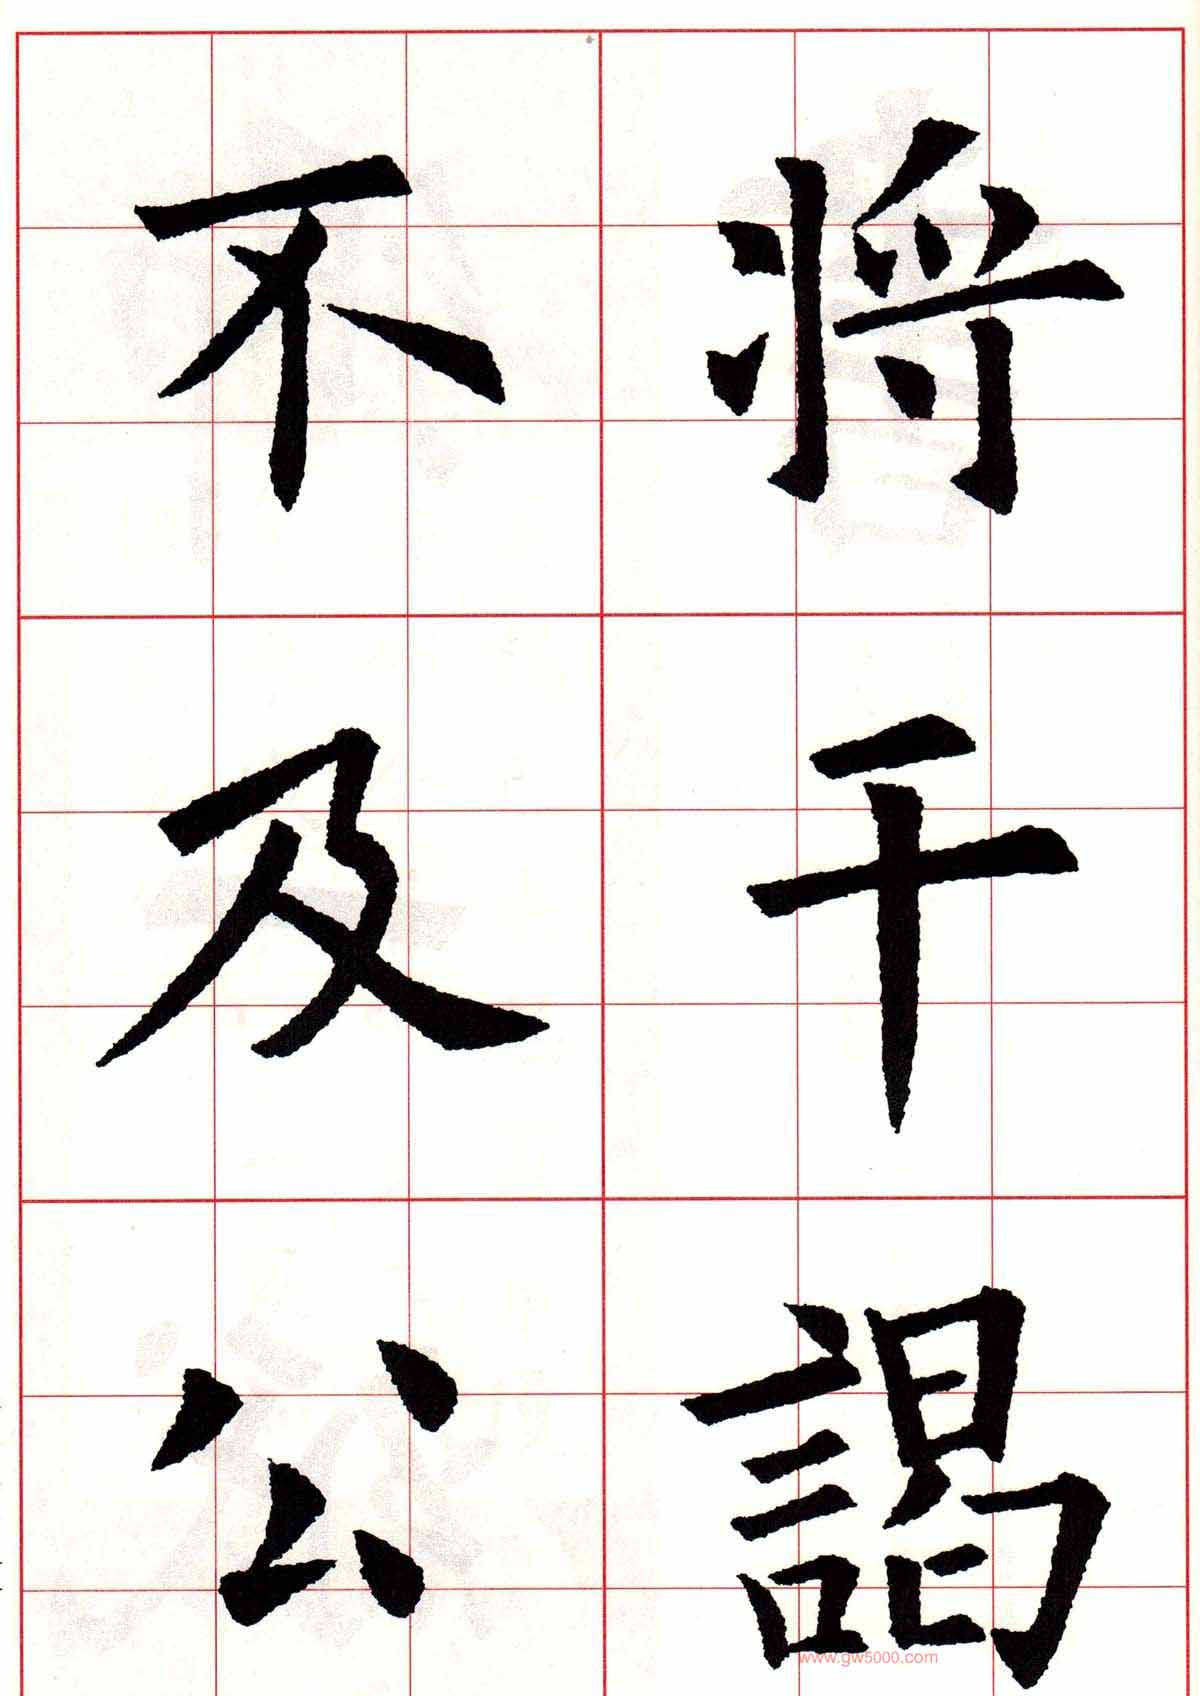 将干謁
不及公
www.gw5000.com